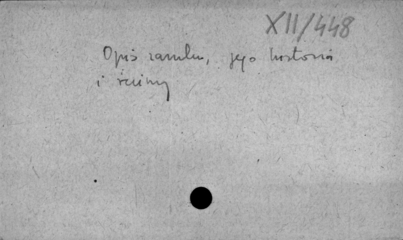 XII/448
Opis zamku, jego historia
i ruiny